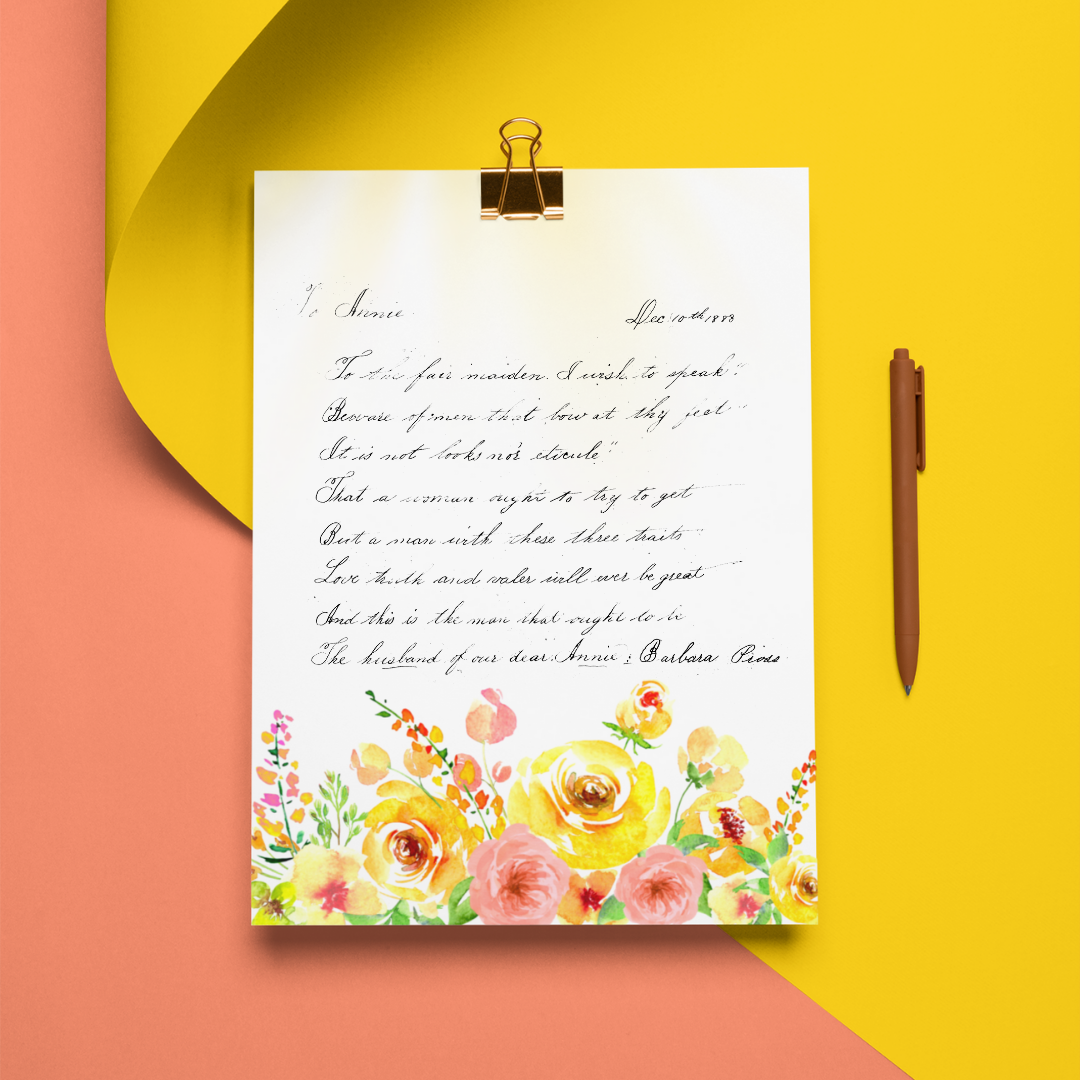 To Annie
Dec 10th 1888
To the fair maiden. I wish to speak"
Beware of men that bow at thy feet"
It is not looks nor eticule"
"That a woman ought to try to get
But a man with these three traits
Love truth and valer will ever be great
And this is the man that ought to be
The husband of our dear. Annie : Barbara